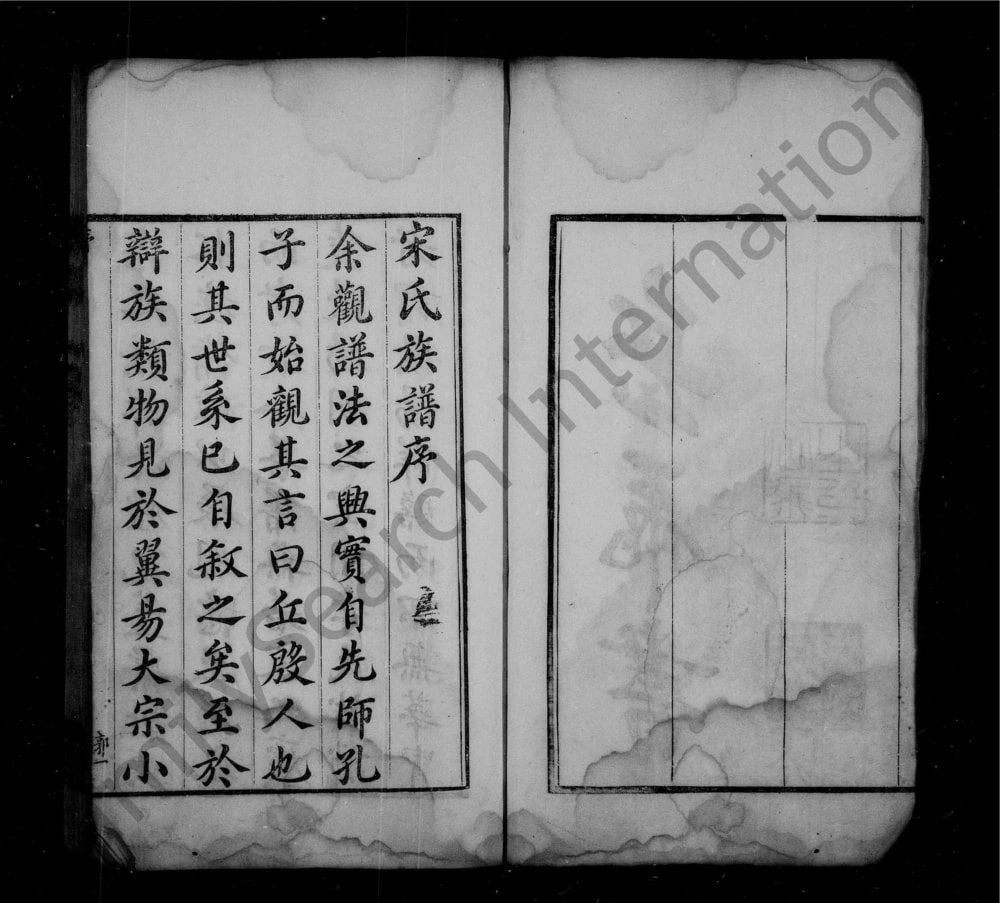 宋氏族譜序
余觀譜法之興實自先師孔
子而始觀其言曰丘殷人也
則其世系已自叙之矣至於
辯族類物見於翼昜大宗小
郭一
FamilySearch International